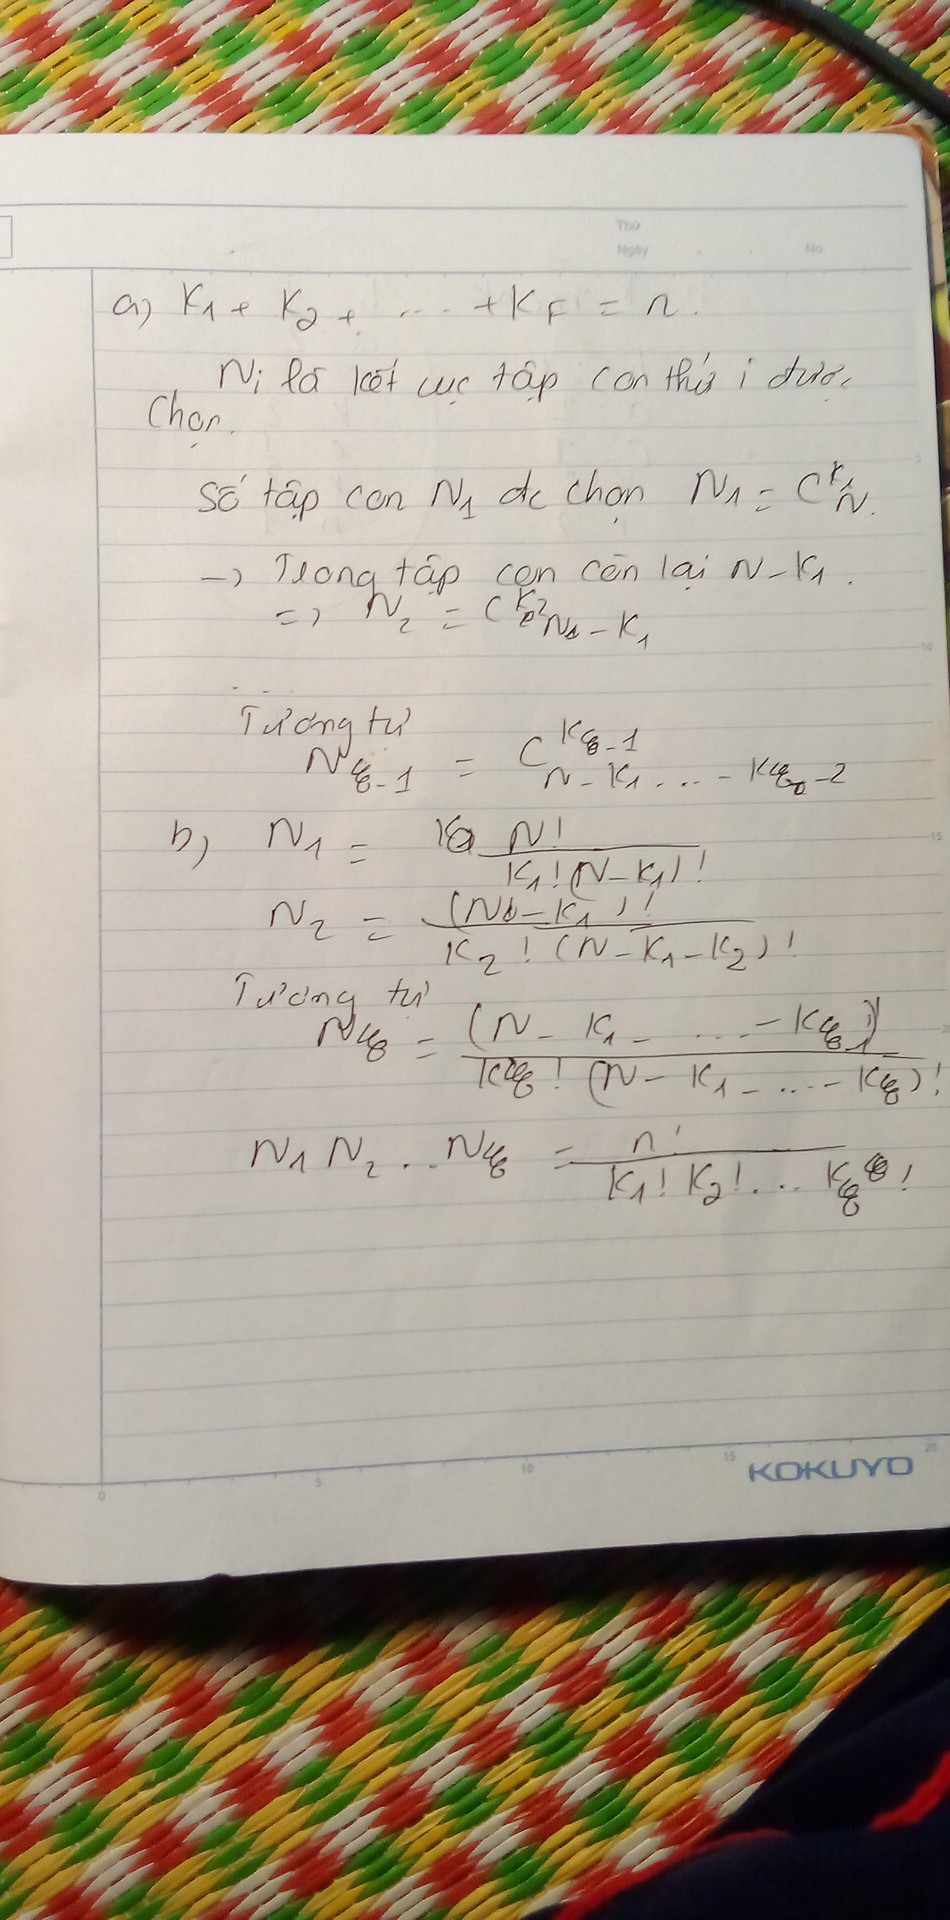 Thứ
Ngày . . No
a) K₁ + K₂ + .... + K_F = n.
Ni là kết cục tập con thứ i được
chọn.
Số tập con N₁ đc chọn N₁ = C^{K₁}_N.
→ Trong tập con còn lại N - K₁.
=> N₂ = C^{K₂}_{N - K₁}
Tương tự
N_{φ-1} = C^{Kφ-1}_{n - K₁ ... - Kφ-2}
b) N₁ = N! / K₁!(N-K₁)!
N₂ = (N-K₁)! / K₂!(N-K₁-K₂)!
Tương tự
Nφ = (N - K₁ - ... - Kφ-1) / Kφ!(N - K₁ - ... - Kφ)!
N₁ N₂ .. Nφ = n! / K₁! K₂! ... Kφ!
0 5 10 15 20
KOKUYO